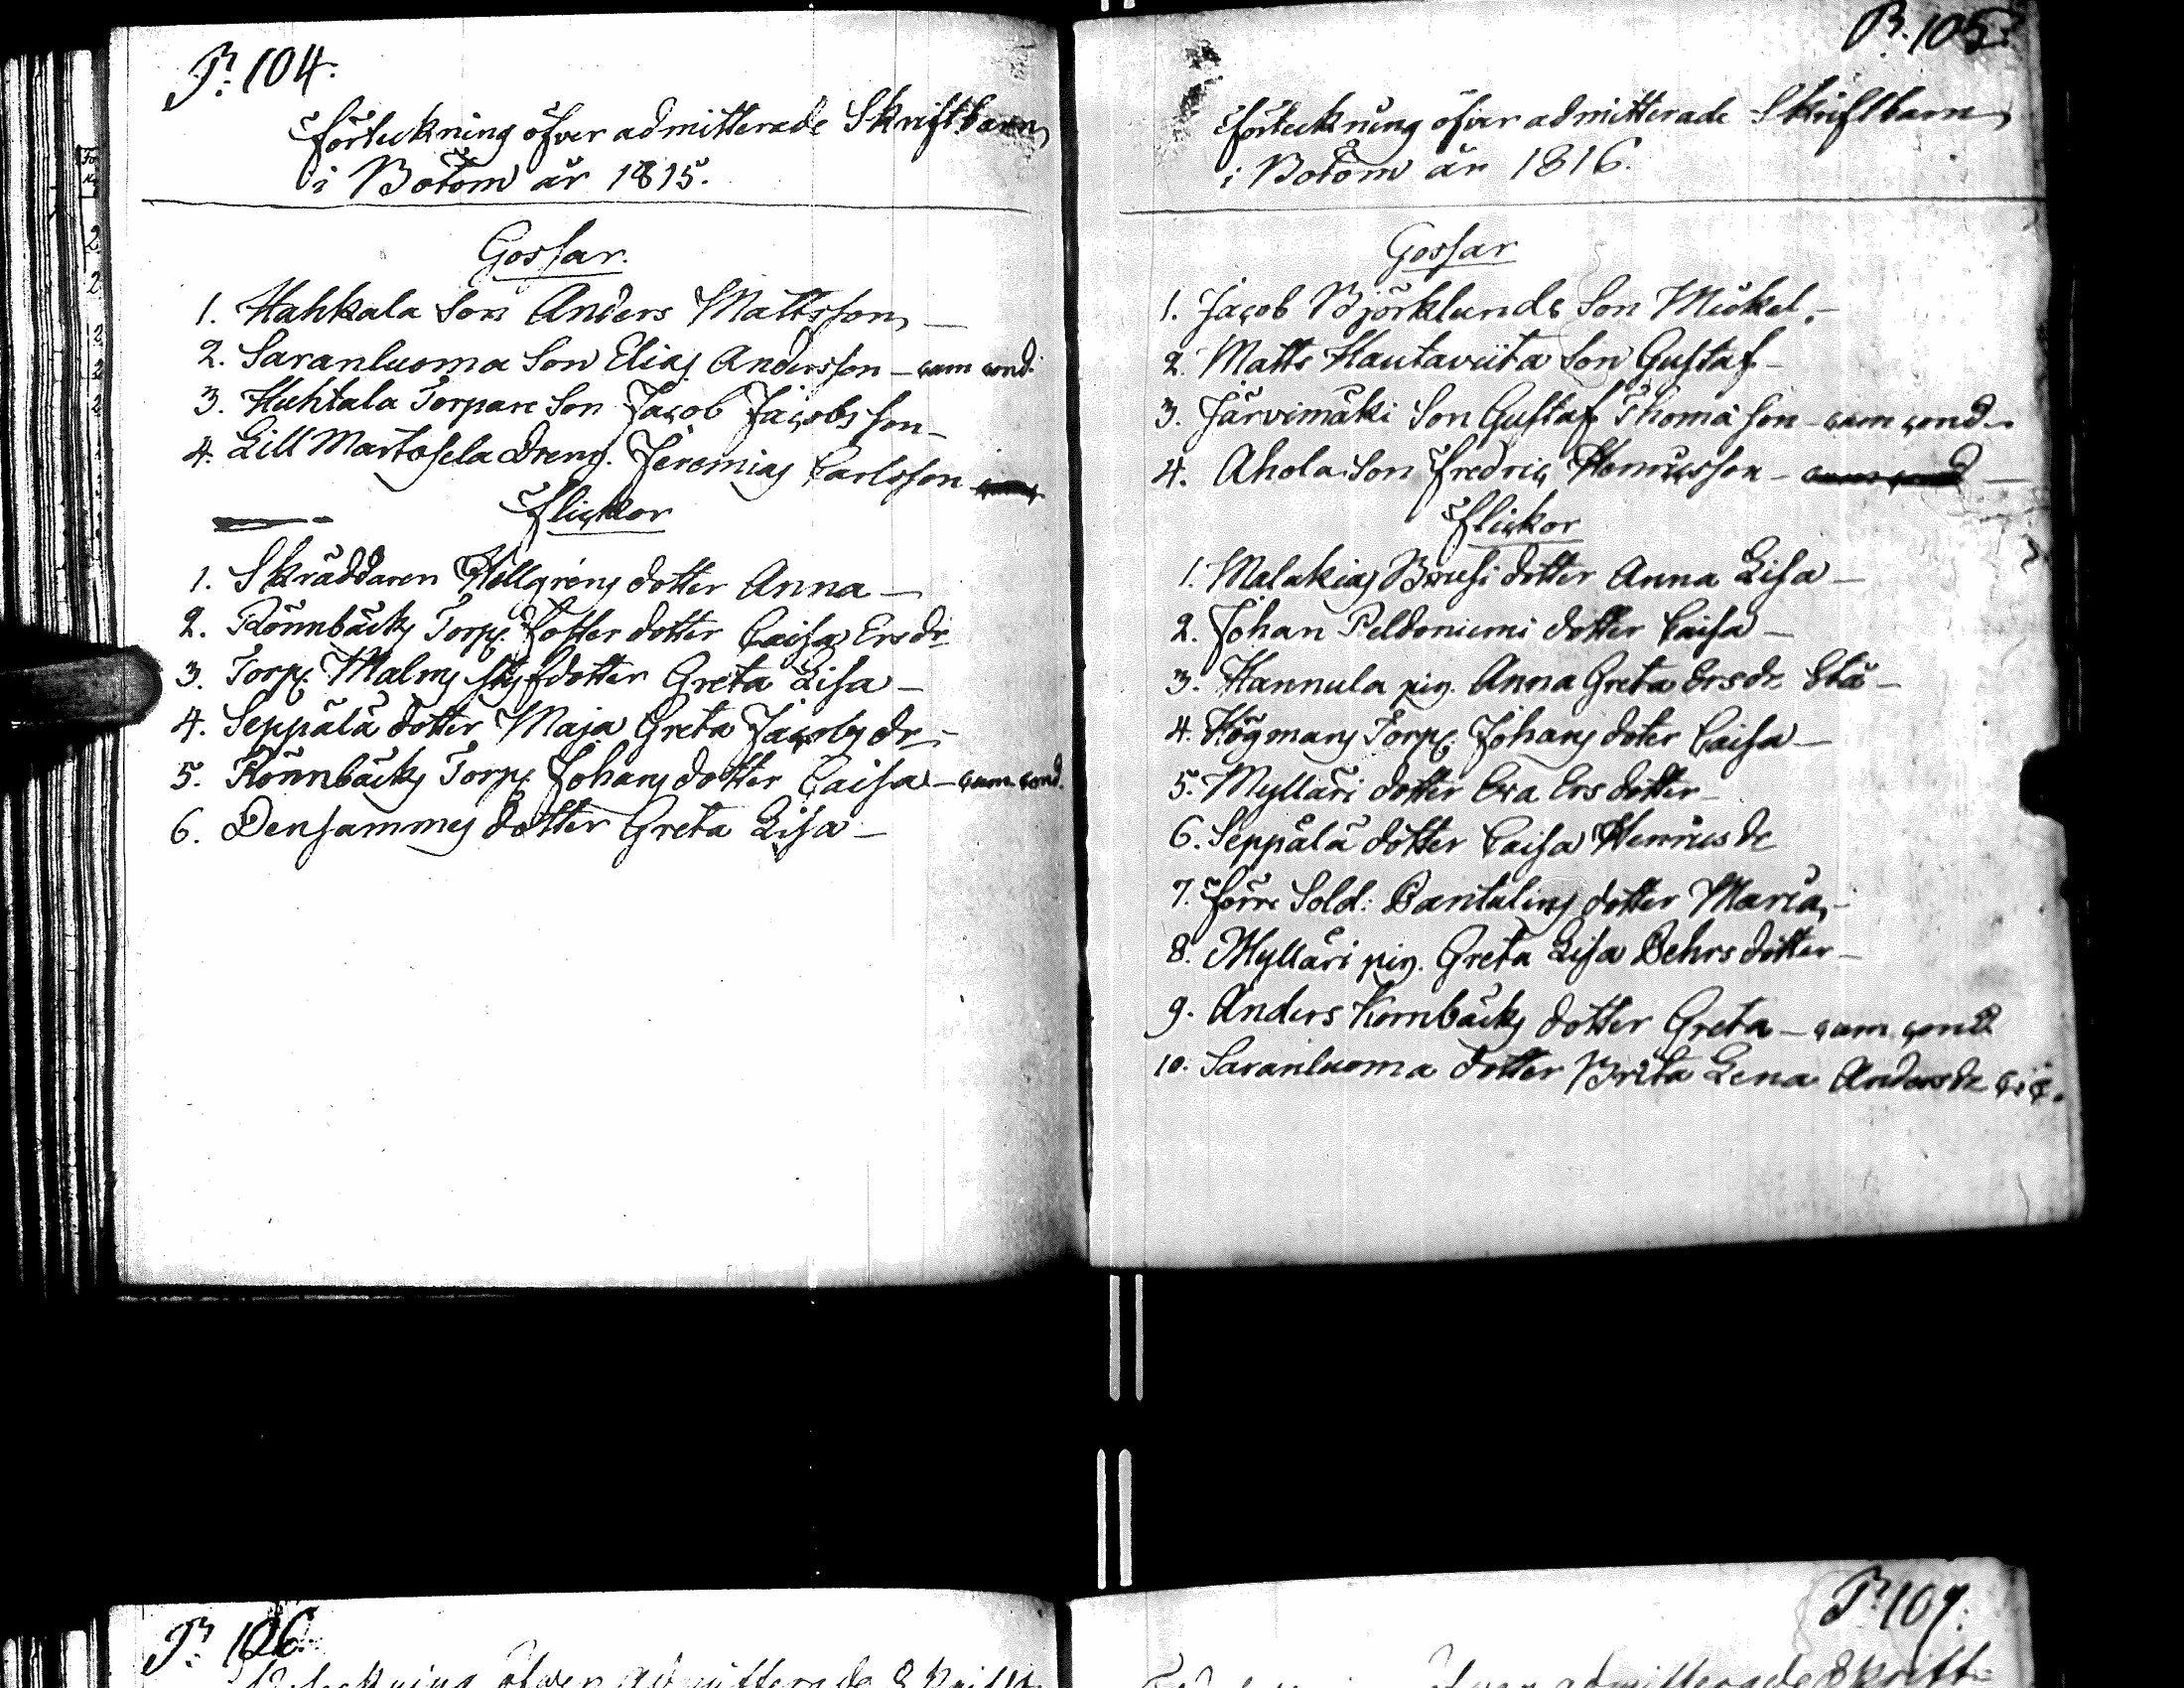 P. 104.
Förteckning öfver admitterade Skriftbarn
i Botom år 1815.
Gossar.
1. Hahkala Son Anders Mattsson —
2. Saranluoma Son Elias Andersson — cum cond.
3. Huhtala Torpare Son Jacob Jacobsson —
4. Lill Martosela Dreng. Jeremias Carlsson
Flickor
1. Skräddaren Hellgrens dotter Anna —
2. Rönnbäcks Torp. Foster dotter Caisa Ersdr
3. Torp. Malms styfdotter Greta Lisa —
4. Seppälä dotter Maja Greta Jacobsdr —
5. Rönnbäcks Torp. Johans dotter Caisa — cum cond.
6. Densammes dotter Greta Lisa —
P. 105.
Förteckning öfver admitterade Skriftbarn
i Botom år 1816.
Gossar
1. Jacob Björklunds Son Mickel. —
2. Matts Hautaviita Son Gustaf —
3. Järvimäki Son Gustaf Thomasson — cum cond.
4. Ahola Son Fredric Henricsson —
Flickor
1. Malakias Brusi dotter Anna Lisa —
2. Johan Peldoniemi dotter Caisa —
3. Hannula pig. Anna Greta Ersdr —
4. Högmans Torp. Johans doter Caisa —
5. Mylläri dotter Eva Ersdotter —
6. Seppälä dotter Caisa Henricsdr
7. Förre Sold. Pantalins dotter Maria —
8. Mylläri pig. Greta Lisa Pehrsdotter —
9. Anders Kornbäcks dotter Greta — cum cond
10. Saranluoma dotter Brita Lena Andersdr c. c.
P. 106.
öfver admitterade Skrift
P. 107.
öfver admitterade Skrift